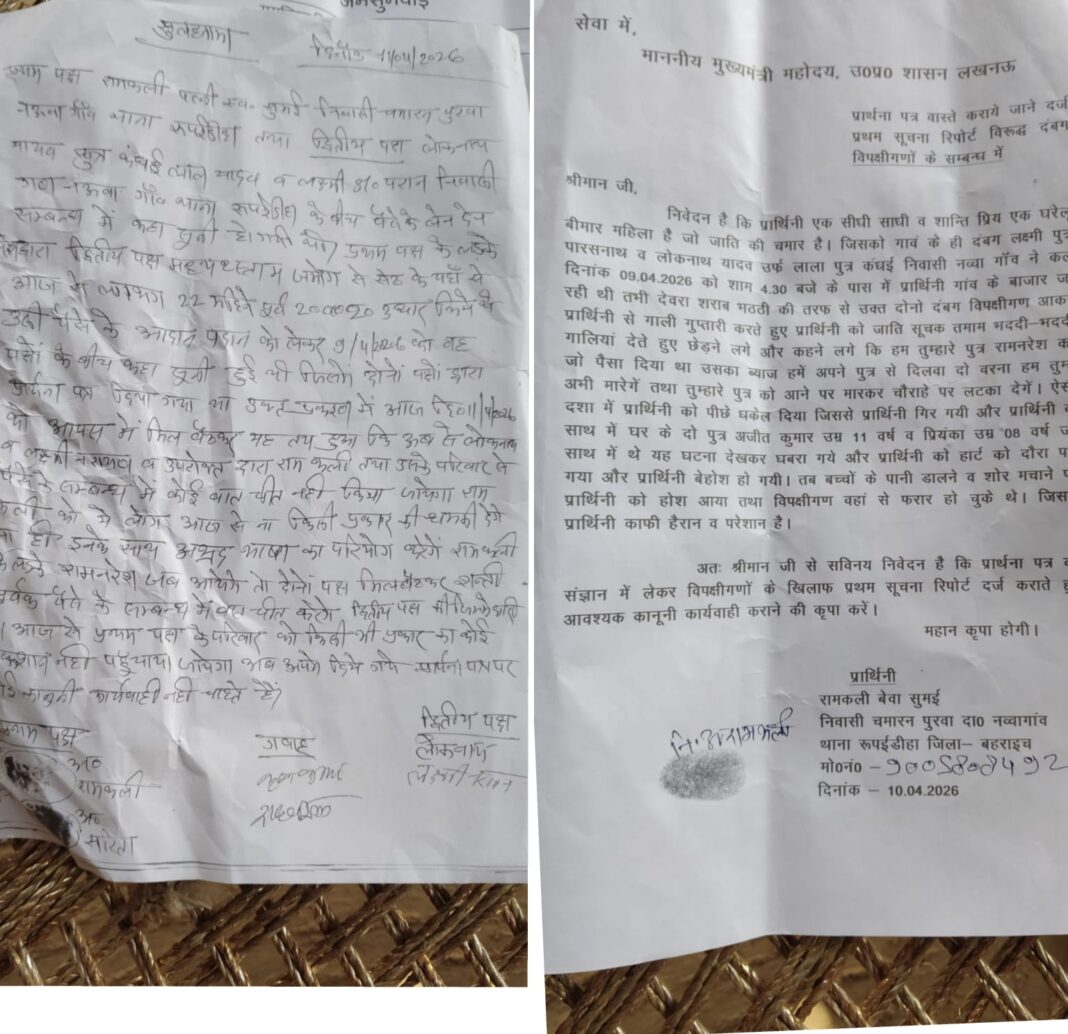 जनसुनवाई
सुलहनामा
दिनाँक 11/04/2026
प्रथम पक्ष रामकली पत्नी स्व० सुमई निवासी चमारन पुरवा
नऊवा गाँव थाना रूपईडीहा तथा द्वितीय पक्ष लोकनाथ
यादव पुत्र कंधई लाल यादव व लक्ष्मी S/o पारस निवासी
नऊवा गाँव थाना रूपईडीहा के बीच पैसे के लेन देन
सम्बन्ध में कहा सुनी हो गयी थी। प्रथम पक्ष के लड़के
द्वारा द्वितीय पक्ष से सेठ के यहाँ से
आज से लगभग 22 महिने पूर्व उधार लिये थे
उसी पैसे के आदान प्रदान को लेकर 9/4/2026 को वह
पक्षों के बीच कहा सुनी हुई थी जिसमें दोनों पक्षों द्वारा
प्रार्थना पत्र दिया गया था उक्त प्रकरण में आज दि० 11/4/2026
को आपस में मिल बैठकर यह तय हुआ कि अब से लोकनाथ
व लक्ष्मी व उपरोक्त द्वारा राम कली तथा उनके परिवार से
पैसे के सम्बन्ध में कोई बात चीत नहीं किया जायेगा राम
कली को ये लोग आज से ना किसी प्रकार की धमकी देंगे
ना ही इनके साथ अभद्र भाषा का परियोग करेंगे रामकली
के लड़के रामनरेश जब आयेंगे तो दोनों पक्ष मिल बैठकर शान्ती
पूर्वक पैसे के सम्बन्ध में बात चीत करेंगे द्वितीय पक्ष की जिम्मेदारी
आज से प्रथम पक्ष के परिवार को किसी भी प्रकार का कोई
नुकशान नहीं पहुँचाया जायेगा अब अपने दिये गये प्रार्थना पत्र पर
कोई कानूनी कार्यवाही नहीं चाहते हैं।
प्रथम पक्ष
अ०
रामकली
अ०
सरिता
गवाह
द्वितीय पक्ष
लोकनाथ
सेवा में,
माननीय मुख्यमंत्री महोदय, उ0प्र0 शासन लखनऊ
प्रार्थना पत्र वास्ते कराये जाने दर्ज
प्रथम सूचना रिपोर्ट विरूद्ध दबंग
विपक्षीगणों के सम्बन्ध में
श्रीमान जी,
निवेदन है कि प्रार्थिनी एक सीधी साधी व शान्ति प्रिय एक घरेलू
बीमार महिला है जो जाति की चमार है। जिसको गाव के ही दबंग लक्ष्मी पुत्र
पारसनाथ व लोकनाथ यादव उर्फ लाला पुत्र कंधई निवासी नव्वा गॉव ने कल
दिनांक 09.04.2026 को शाम 4.30 बजे के पास में प्रार्थिनी गांव के बाजार जा
रही थी तभी देवरा शराब भठठी की तरफ से उक्त दोनो दबंग विपक्षीगण आकर
प्रार्थिनी से गाली गुप्तारी करते हुए प्रार्थिनी को जाति सूचक तमाम भददी–भददी
गालियां देते हुए छेड़ने लगे और कहने लगे कि हम तुम्हारे पुत्र रामनरेश को
जो पैसा दिया था उसका ब्याज हमें अपने पुत्र से दिलवा दो वरना हम तुम्हे
अभी मारेगें तथा तुम्हारे पुत्र को आने पर मारकर चौराहे पर लटका देगें। ऐसी
दशा में प्रार्थिनी को पीछे धकेल दिया जिससे प्रार्थिनी गिर गयी और प्रार्थिनी के
साथ में घर के दो पुत्र अजीत कुमार उम्र 11 वर्ष व प्रियंका उम्र 08 वर्ष जो
साथ में थे यह घटना देखकर घबरा गये और प्रार्थिनी को हार्ट को दौरा पड़
गया और प्रार्थिनी बेहोश हो गयी। तब बच्चों के पानी डालने व शोर मचाने पर
प्रार्थिनी को होश आया तथा विपक्षीगण वहां से फरार हो चुके थे। जिससे
प्रार्थिनी काफी हैरान व परेशान है।
अतः श्रीमान जी से सविनय निवेदन है कि प्रार्थना पत्र को
संज्ञान में लेकर विपक्षीगणों के खिलाफ प्रथम सूचना रिपोर्ट दर्ज कराते हुए
आवश्यक कानूनी कार्यवाही कराने की कृपा करें।
महान कृपा होगी।
प्रार्थिनी
रामकली बेवा सुमई
निवासी चमारन पुरवा दा0 नव्वागांव
थाना रूपईडीहा जिला– बहराइच
मो0नं0 – 9005808492
दिनांक – 10.04.2026
नि. अ रामकली